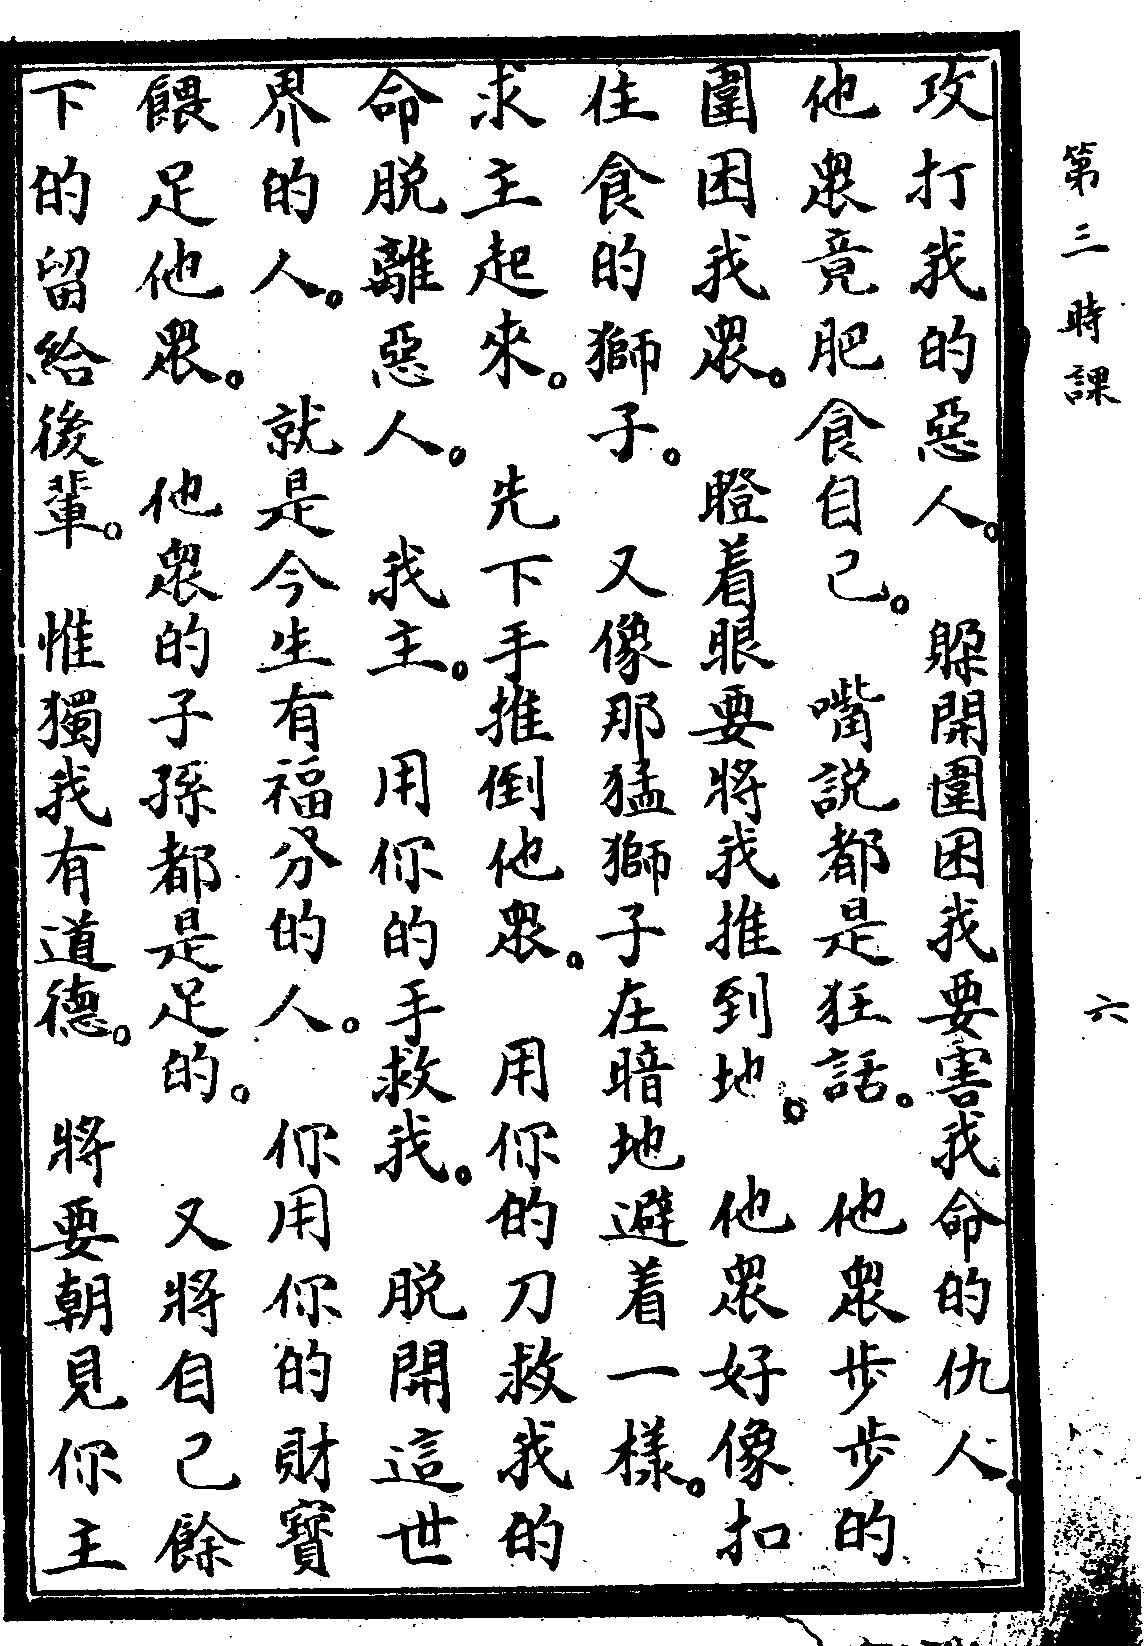 第三時課 六
攻打我的惡人。躲開圍困我要害我命的仇人。
他衆竟肥食自己。嘴說都是狂話。他衆步步的
圍困我衆。瞪着眼要將我推到地。他衆好像扣
住食的獅子。又像那猛獅子在暗地避着一樣。
求主起來。先下手推倒他衆。用你的刀救我的
命脱離惡人。我主。用你的手救我。脱開這世
界的人。就是今生有福分的人。你用你的財寶
餵足他衆。他衆的子孫都是足的。又將自己餘
下的留給後輩。惟獨我有道德。將要朝見你主